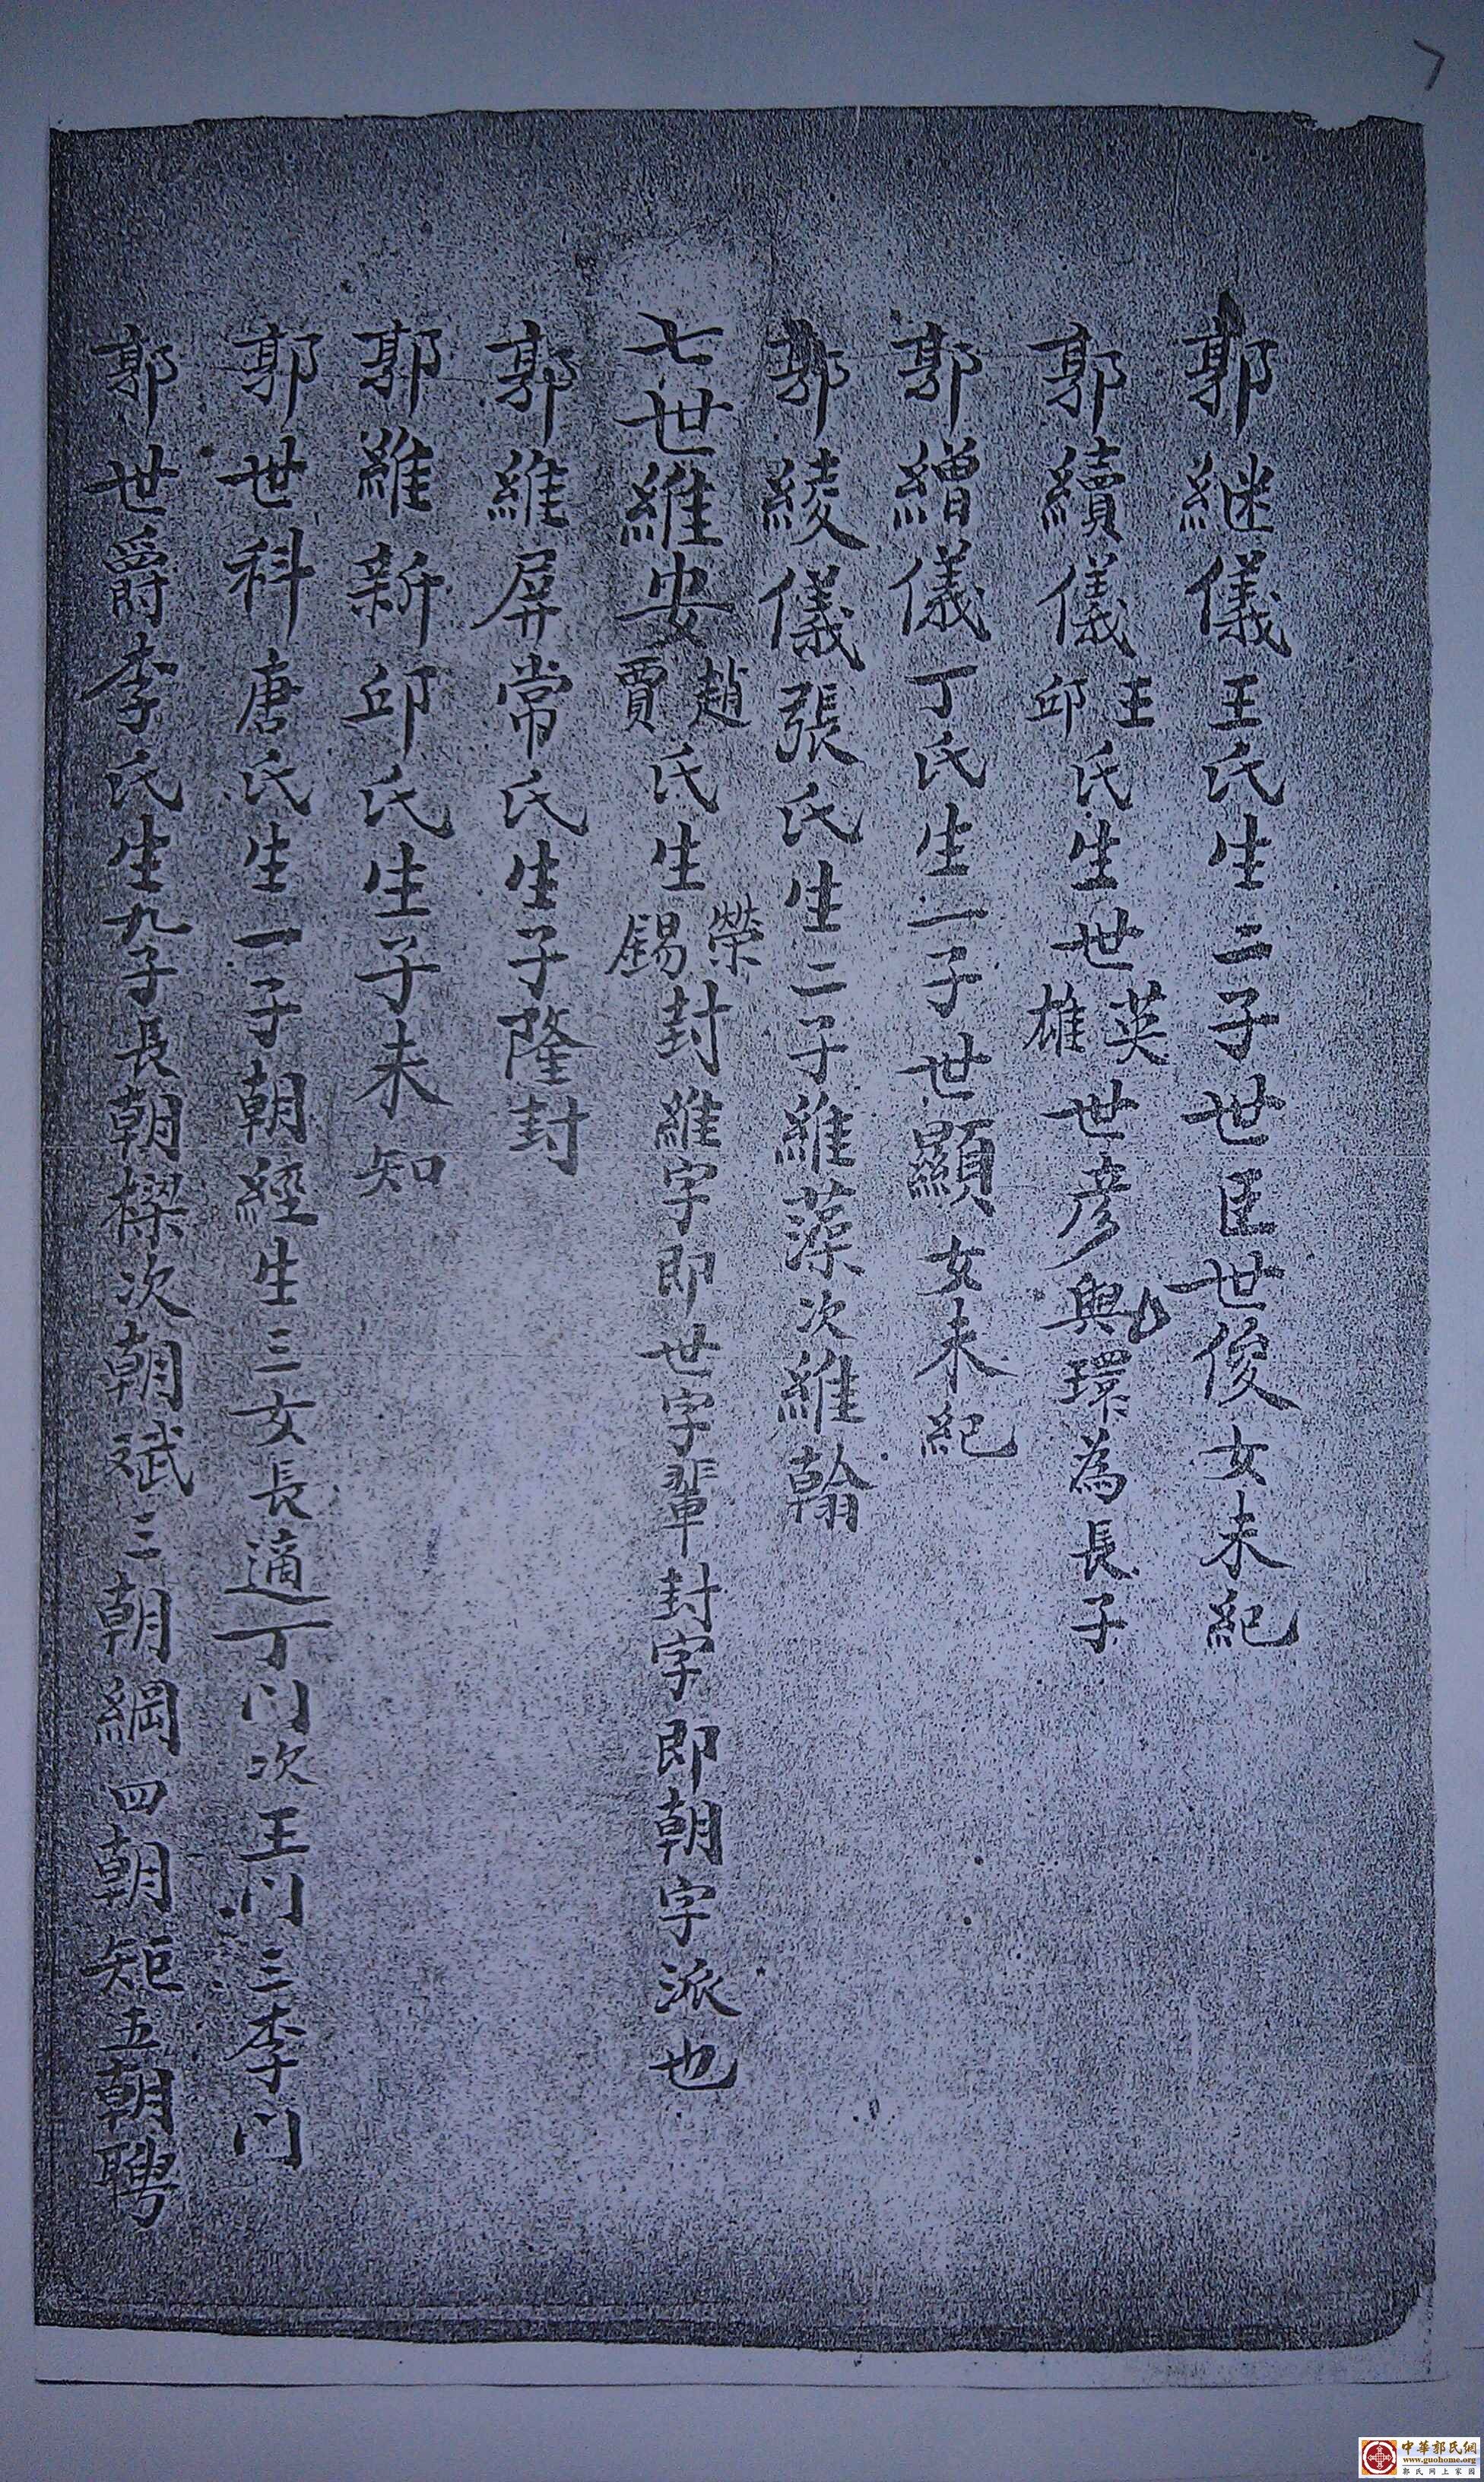 郭継儀王氏生二子世臣世俊女未紀
郭續儀王邱氏生世英雄世彦與環為長子
郭繒儀丁氏生一子世顯女未紀
郭綾儀張氏生二子維藻次維翰
七世維安趙賈氏生榮錫封維字即世字輩封字即朝字派也
郭維屏常氏生子隆封
郭維新邱氏生子未知
郭世科唐氏生一子朝經生三女長適丁门次王门三李门
郭世爵李氏生九子長朝樑次朝斌三朝綱四朝矩五朝聘
中華郭氏網
www.guohome.org
郭氏网上家园